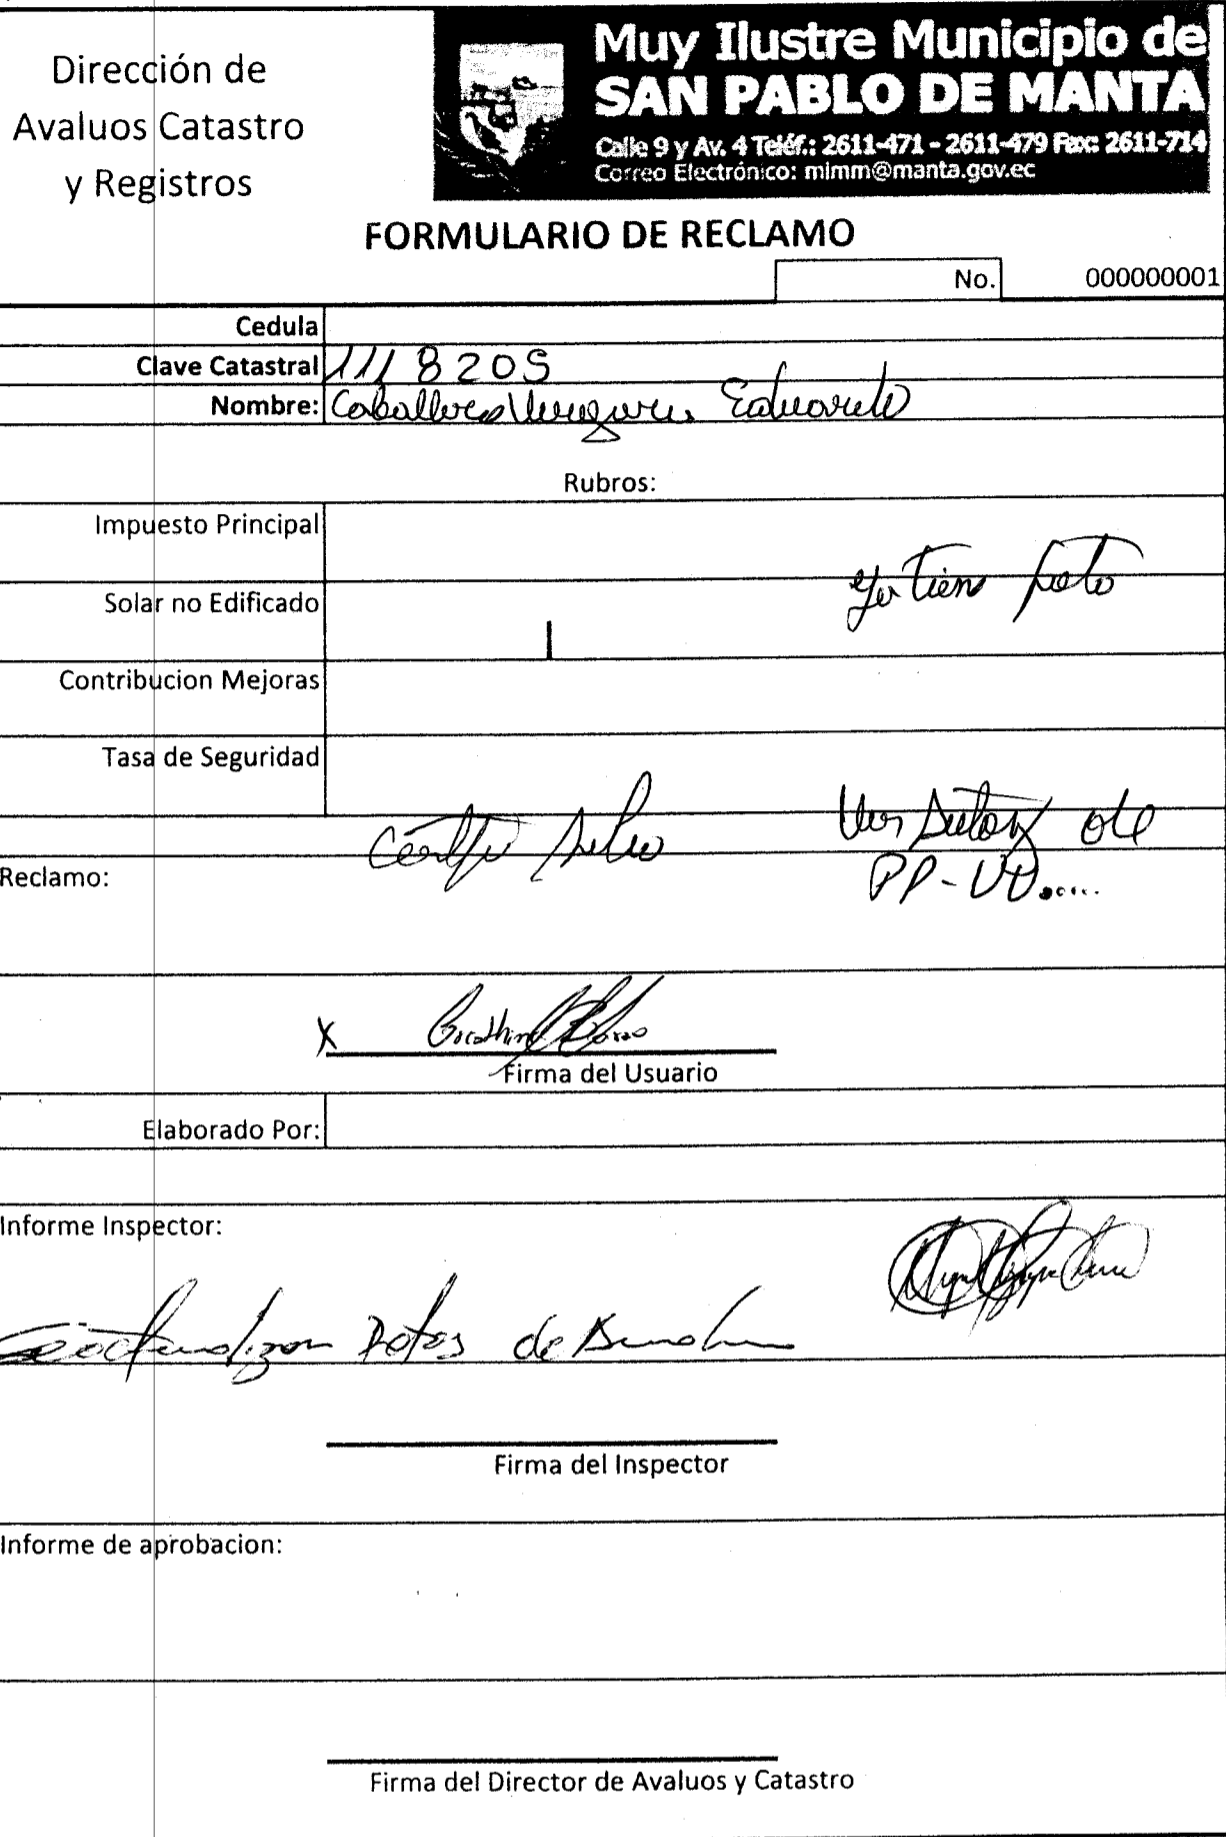 Dirección de
Avaluos Catastro
y Registros
Muy Ilustre Municipio de
SAN PABLO DE MANTA
Calle 9 y Av. 4 Teléf.: 2611-471 - 2611-479 Fax: 2611-714
Correo Electrónico: mimm@manta.gov.ec
FORMULARIO DE RECLAMO
No. 000000001
Cedula
Clave Catastral 1118205
Nombre: Eduardo
Rubros:
Impuesto Principal
Solar no Edificado
Contribucion Mejoras
Tasa de Seguridad
Reclamo:
X
Firma del Usuario
Elaborado Por:
Informe Inspector:
Datos de
Firma del Inspector
Informe de aprobacion:
Firma del Director de Avaluos y Catastro